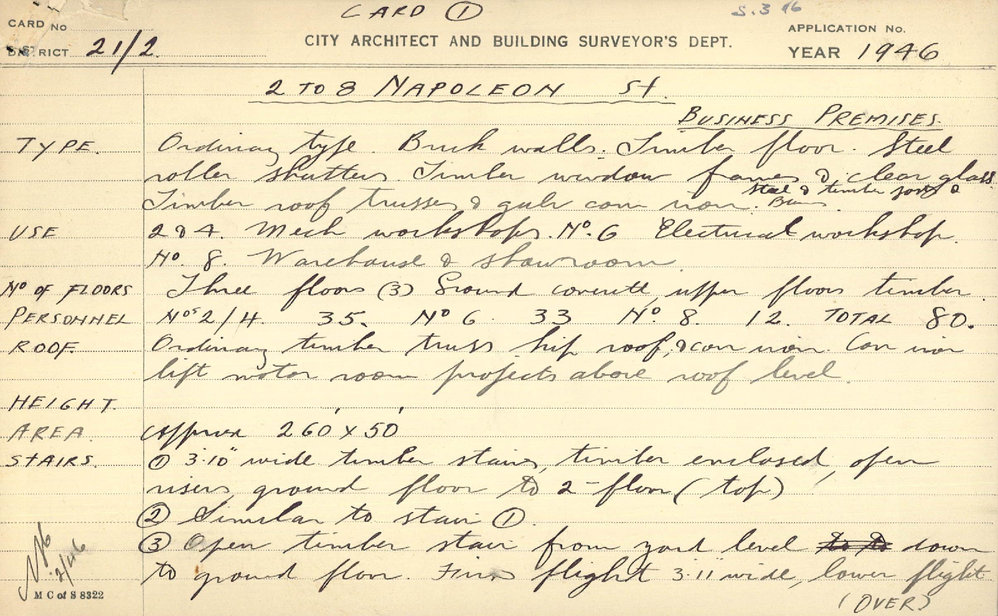 CARD ① S.3 16
CARD No
DISTRICT 21/2 CITY ARCHITECT AND BUILDING SURVEYOR'S DEPT. APPLICATION No.
YEAR 1946
2 TO 8 NAPOLEON St.
BUSINESS PREMISES.
TYPE. Ordinary type. Brick walls. Timber floor. Steel
roller shutters. Timber window frames & clear glass.
Timber roof trusses & galv corr iron. steel & timber joists &
Beams.
USE 2 & 4. Mech workshops. No. 6 Electrical workshop.
No. 8. Warehouse & showroom
No OF FLOORS Three floors (3) Ground concrete, upper floors timber.
PERSONNEL Nos 2/4. 35. No 6. 33 No 8. 12. TOTAL 80.
ROOF. Ordinary timber truss hip roof, & corr iron. Corr iron
lift motor room projects above roof level.
HEIGHT.
AREA. Approx 260' x 50'
STAIRS. ① 3'.10" wide timber stairs, timber enclosed, open
risers, ground floor to 2-floor (top)
② Similar to stair ①.
③ Open timber stair from yard level down
to ground floor. flight 3'.11" wide, lower flight
2/46
M C of S 8322
(OVER)